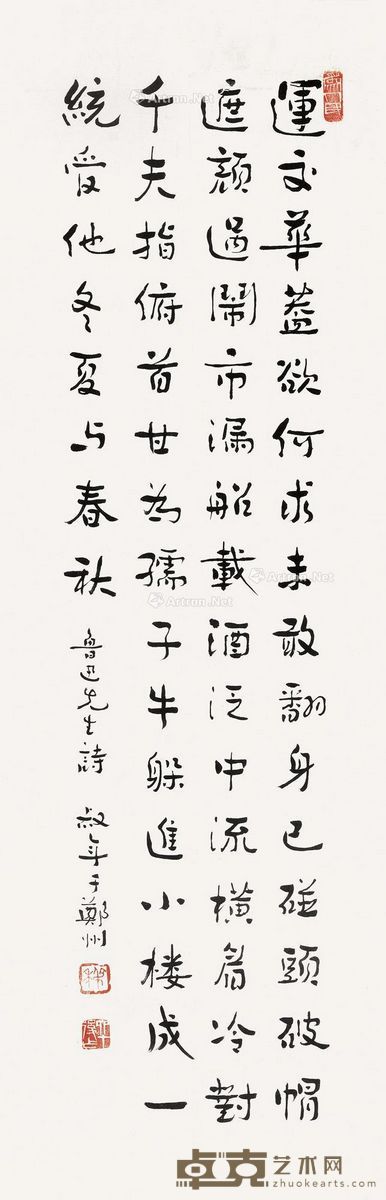 運交華蓋欲何求未敢翻身已碰頭破帽
遮顏過鬧市漏船載酒泛中流橫眉冷對
千夫指俯首甘為孺子牛躲進小楼成一
統受他冬夏与春秋
魯迅先生詩 叔年于鄭州
Artron.Net
Artron.Net
Artron.Net
Artron.Net
卓克艺术网
zhuokearts.com